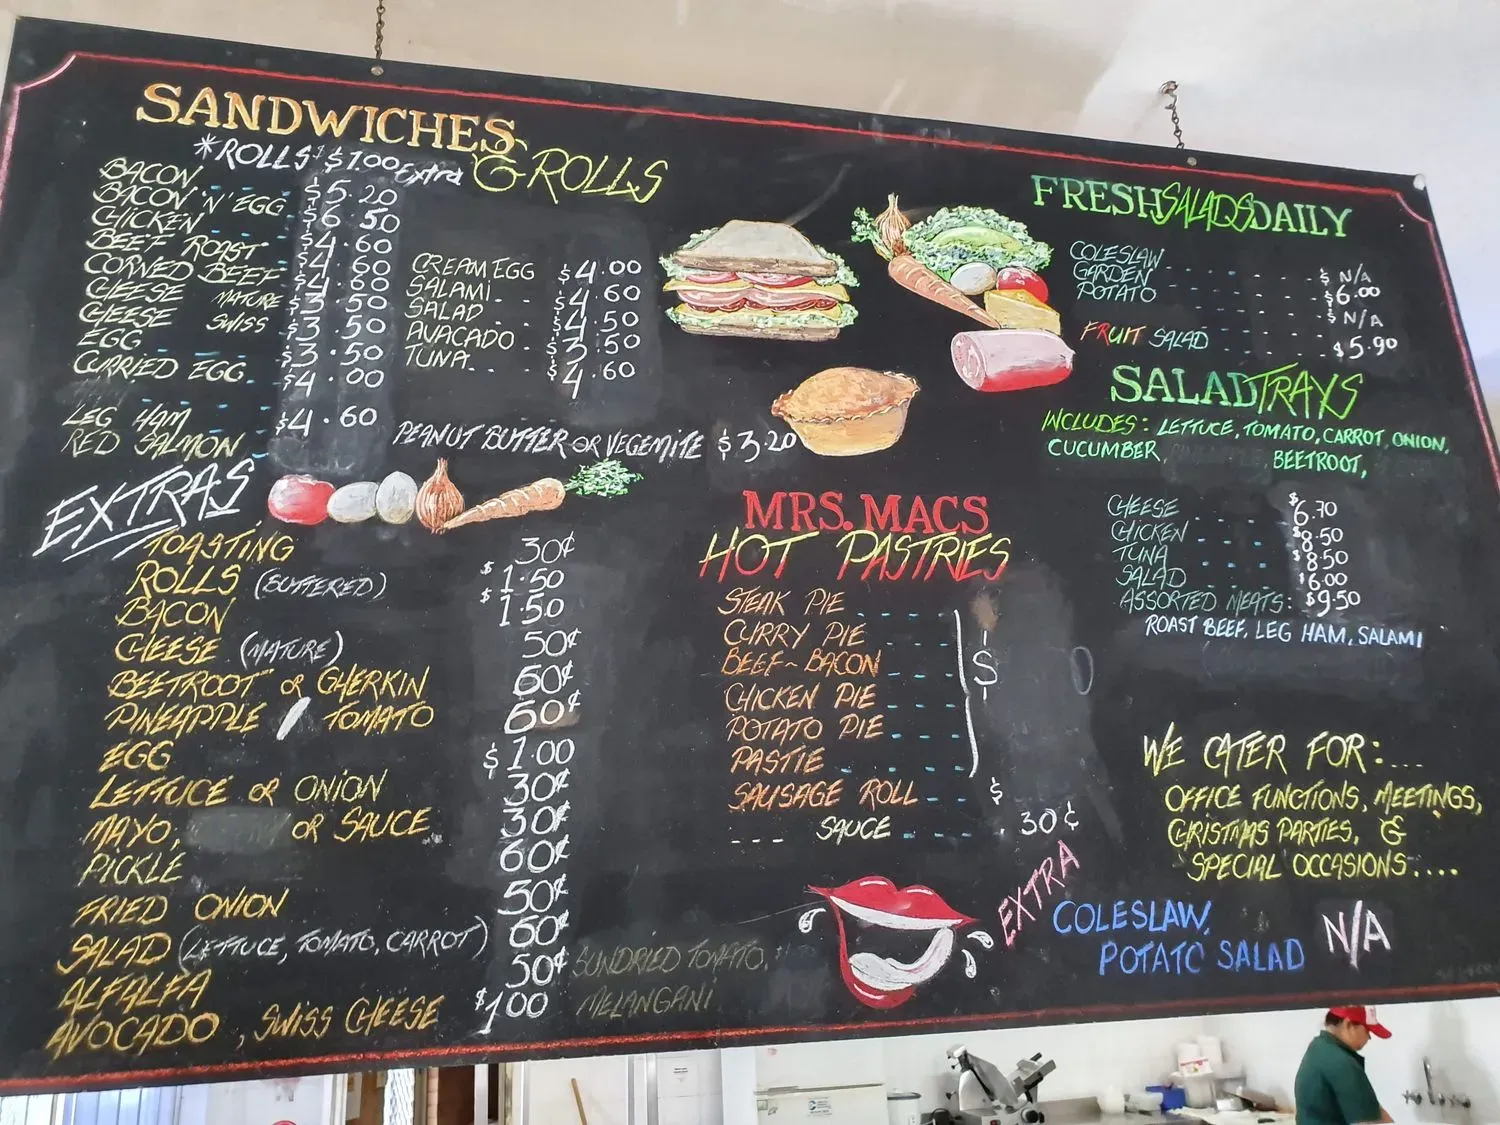 SANDWICHES
& ROLLS
*ROLLS $1.00 Extra
BACON $5.20
BACON 'N' EGG $6.50
CHICKEN $4.60
BEEF ROAST $4.60
CORNED BEEF $4.60
CHEESE MATURE $3.50
CHEESE SWISS $3.50
EGG $3.50
CURRIED EGG $4.00
LEG HAM $4.60
RED SALMON
CREAM EGG $4.00
SALAMI $4.60
SALAD $4.50
AVACADO $3.50
TUNA $4.60
PEANUT BUTTER OR VEGEMITE $3.20
EXTRAS
TOASTING 30¢
ROLLS (BUTTERED) $1.50
BACON $1.50
CHEESE (MATURE) 50¢
BEETROOT OR GHERKIN 60¢
PINEAPPLE / TOMATO 60¢
EGG $1.00
LETTUCE OR ONION 30¢
MAYO, OR SAUCE 30¢
PICKLE 60¢
FRIED ONION 50¢
SALAD (LETTUCE, TOMATO, CARROT) 60¢
ALFALFA 50¢
AVOCADO, SWISS CHEESE $1.00
SUNDRIED TOMATO,
MELANGANI
MRS. MACS
HOT PASTRIES
STEAK PIE
CURRY PIE
BEEF~BACON $
CHICKEN PIE
POTATO PIE
PASTIE
SAUSAGE ROLL $
--- SAUCE .30¢
EXTRA
FRESH SALADS DAILY
COLESLAW $ N/A
GARDEN $6.00
POTATO $ N/A
FRUIT SALAD $5.90
SALAD TRAYS
INCLUDES: LETTUCE, TOMATO, CARROT, ONION,
CUCUMBER, BEETROOT,
CHEESE $6.70
CHICKEN $8.50
TUNA $8.50
SALAD $6.00
ASSORTED MEATS: $9.50
ROAST BEEF, LEG HAM, SALAMI
WE CATER FOR:....
OFFICE FUNCTIONS, MEETINGS,
CHRISTMAS PARTIES, &
SPECIAL OCCASIONS....
COLESLAW,
POTATO SALAD N/A